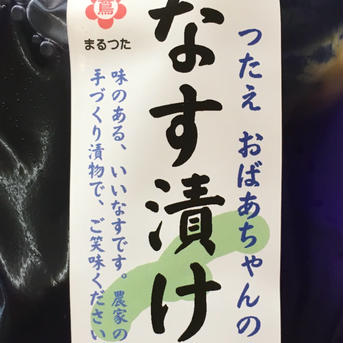 蔦
まるつた
つたえ おばあちゃんの
なす漬け
味のある、いいなすです。農家の
手づくり漬物で、ご笑味ください